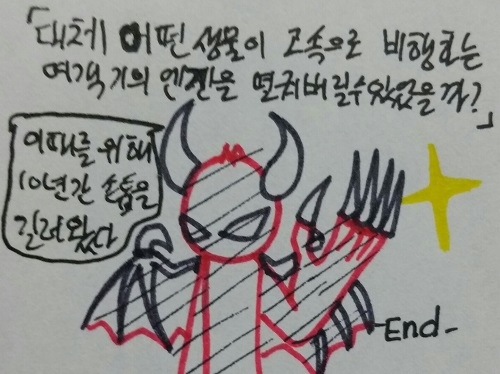 「대체 어떤 생물이 고속으로 비행하는
여객기의 엔진을 멸취버릴수있었을까?」
이때를 위해
10년간 손톱을
길러왔다
-End-